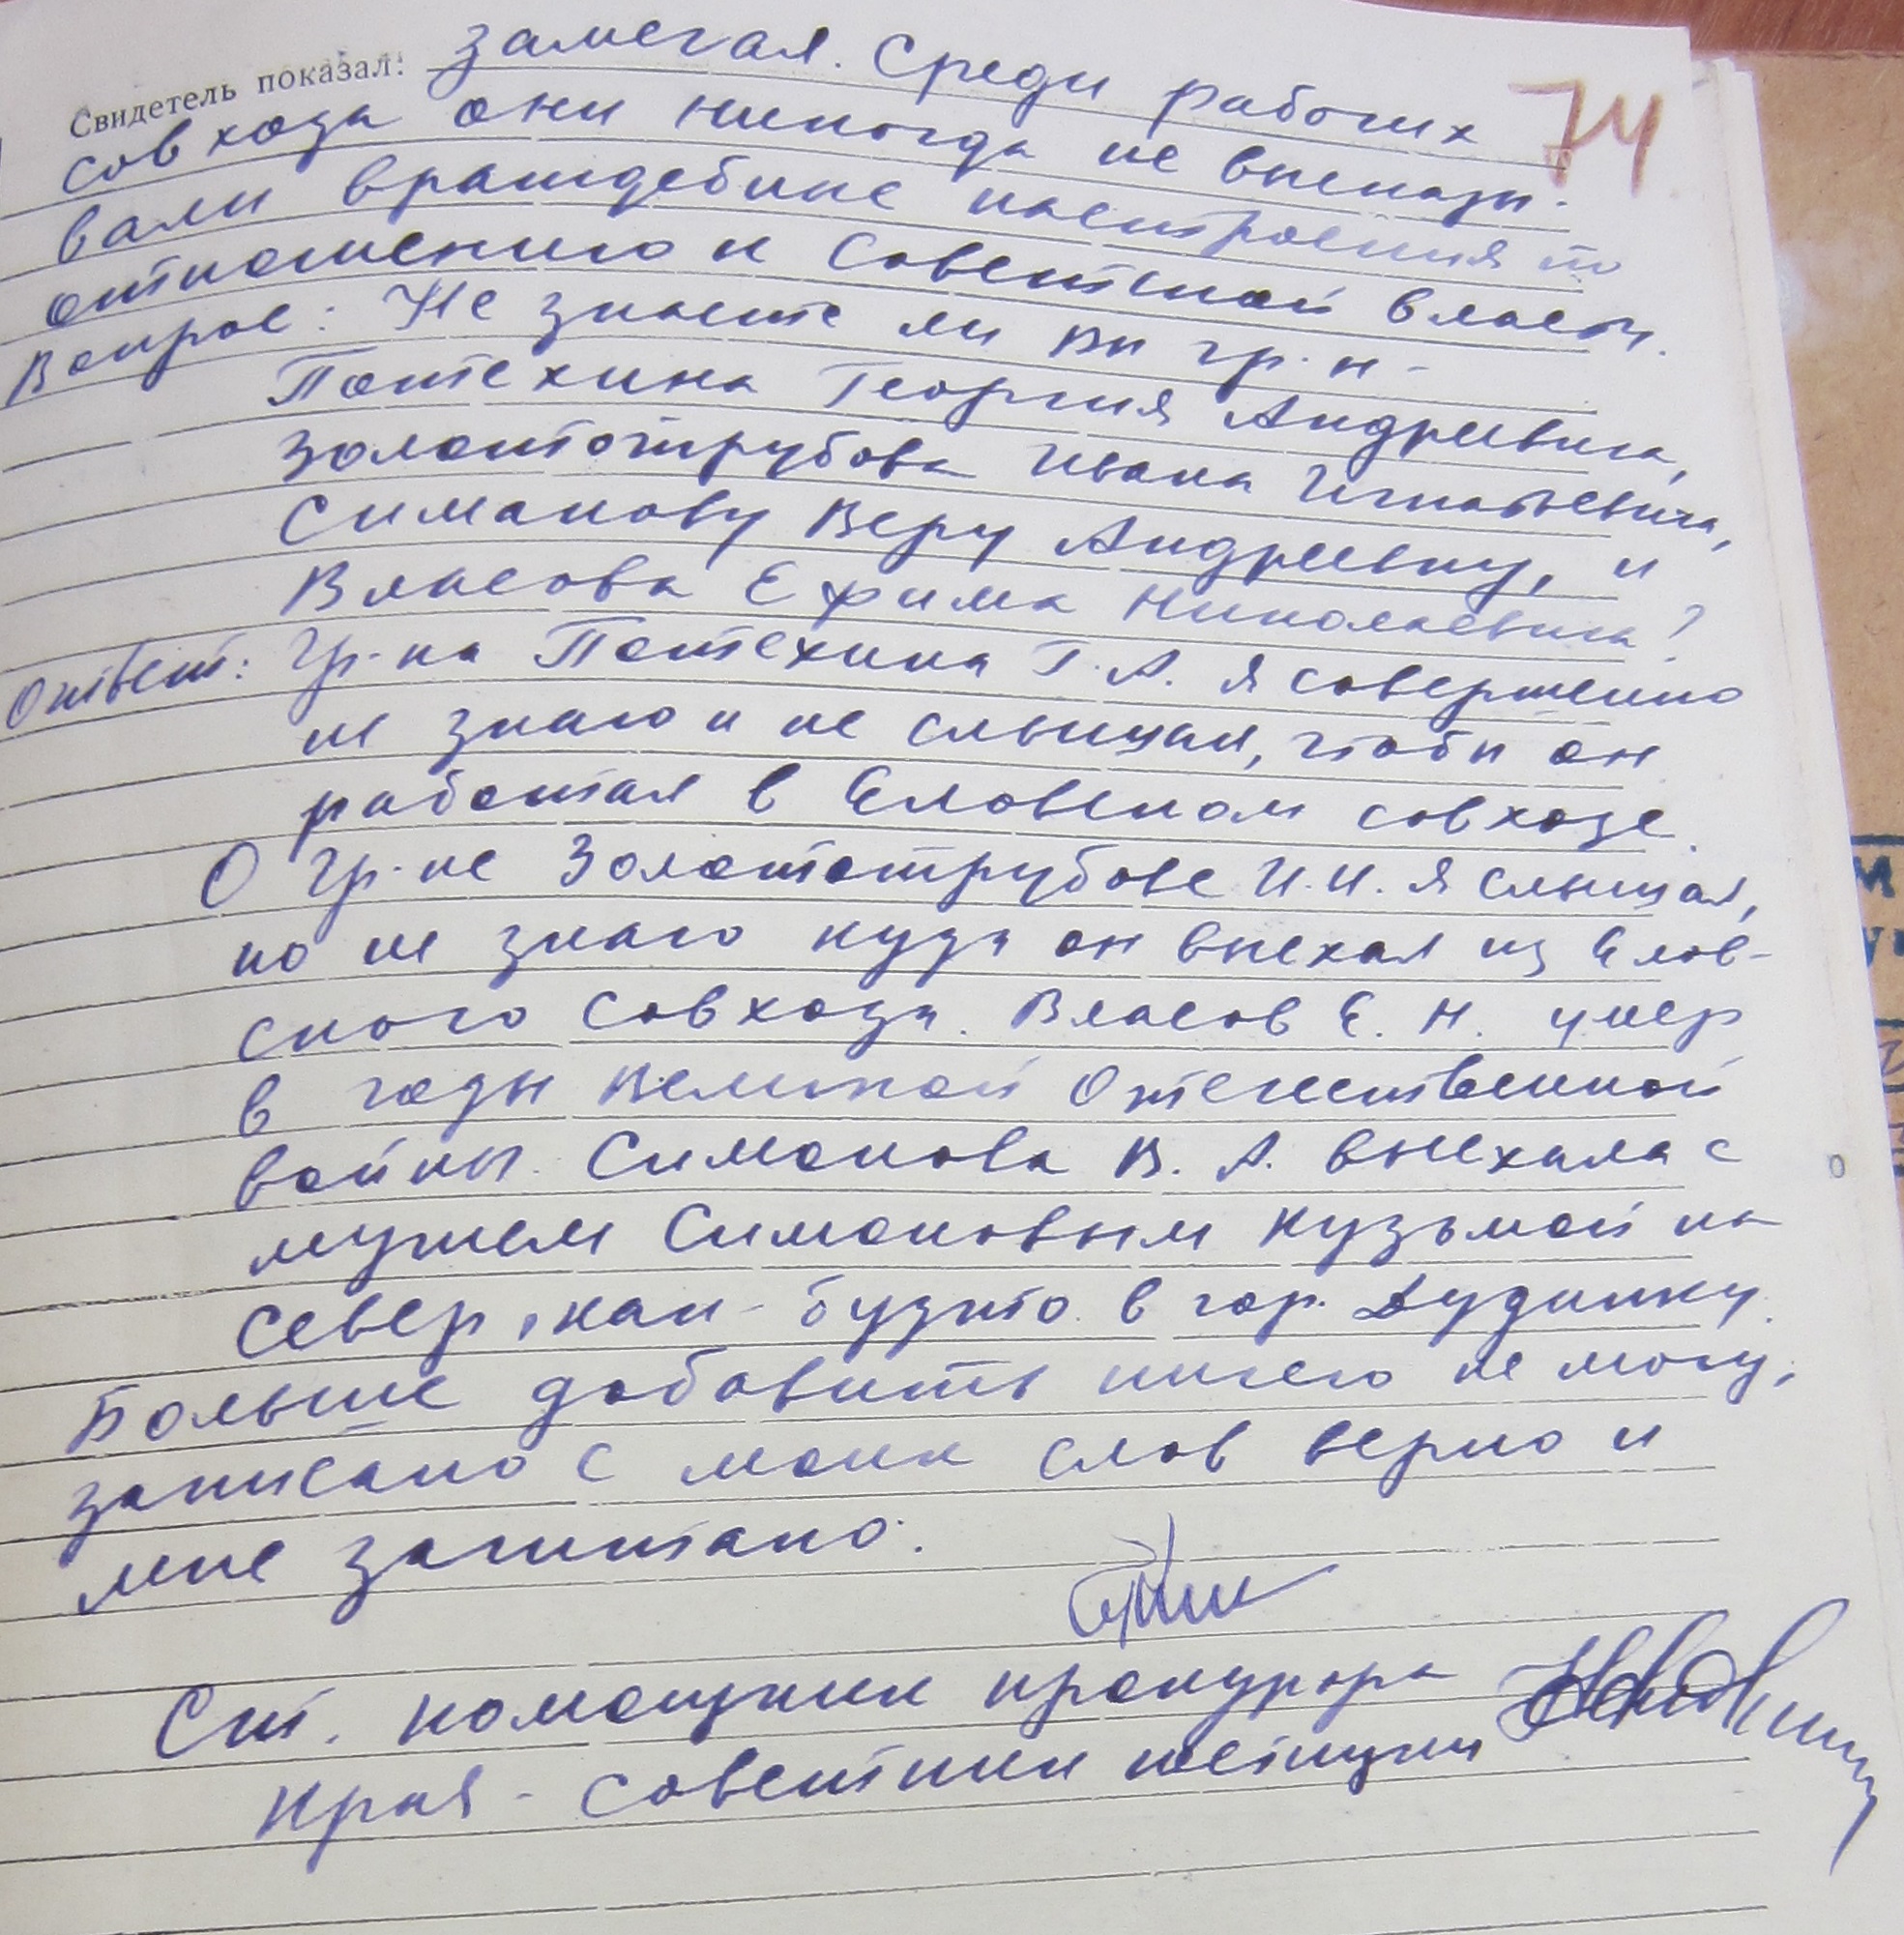 74
Свидетель показал: замечал. Среди рабочих
совхоза они никогда не высказы-
вали враждебные настроения по
отношению к Советской власти.
Вопрос: Не знаете ли Вы гр-н -
Потехина Георгия Андреевича,
Золототрубова Ивана Игнатьевича,
Симанову Веру Андреевну, и
Власова Ефима Николаевича?
Ответ: Гр-на Потехина Г.А. я совершенно
не знаю и не слышал, чтобы он
работал в Еловском совхозе.
О гр-не Золототрубове И.И. я слышал,
но не знаю куда он выехал из Елов-
ского совхоза. Власов Е.Н. умер
в годы Великой Отечественной
войны. Симонова В.А. выехала с
мужем Симоновым Кузьмой на
север, как-будто в гор. Дудинку.
Больше добавить ничего не могу,
записано с моих слов верно и
мне зачитано.
Ст. помощник прокурора
края - советник юстиции